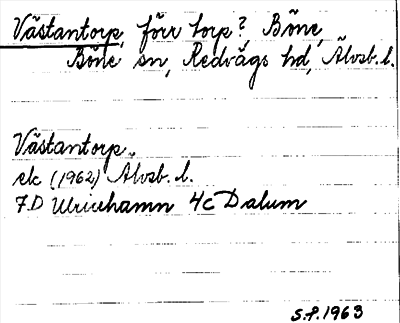 Västantorp, förr torp?, Böne,
Böne sn, Redvägs hd, Älvsb. l.
Västantorp.
ek (1962) Älvsb. l.
7D Ulricehamn 4c Dalum
S.P. 1963